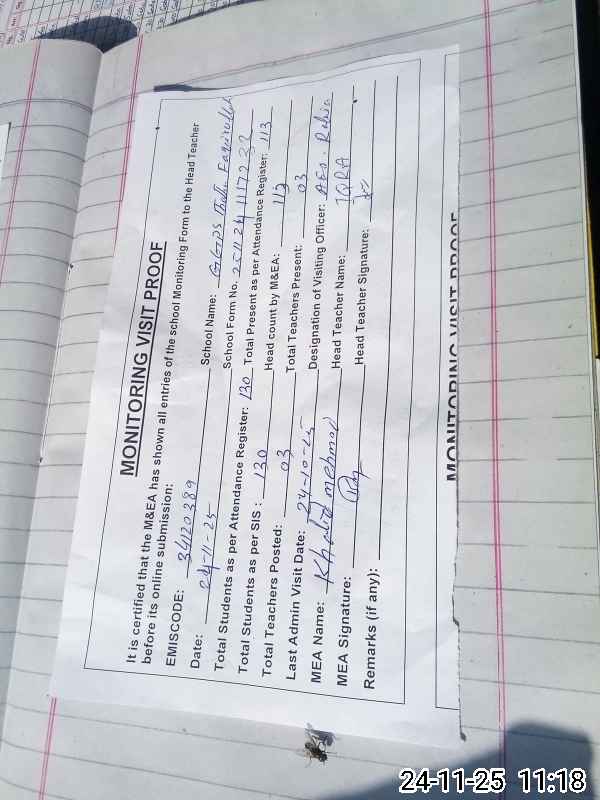 MONITORING VISIT PROOF
It is certified that the M&EA has shown all entries of the school Monitoring Form to the Head Teacher
before its online submission:
EMISCODE: 34120389 School Name: GGPS
Date: 24-11-25 School Form No.
Total Students as per Attendance Register: 130 Total Present as per Attendance Register: 113
Total Students as per SIS : 130 Head count by M&EA: 113
Total Teachers Posted: 03 Total Teachers Present: 03
Last Admin Visit Date: 24-10-25 Designation of Visiting Officer: AEO
MEA Name: Khalid mehmod Head Teacher Name: IQRA
MEA Signature: Head Teacher Signature:
Remarks (if any):
MONITORING VISIT PROOF
24-11-25 11:18